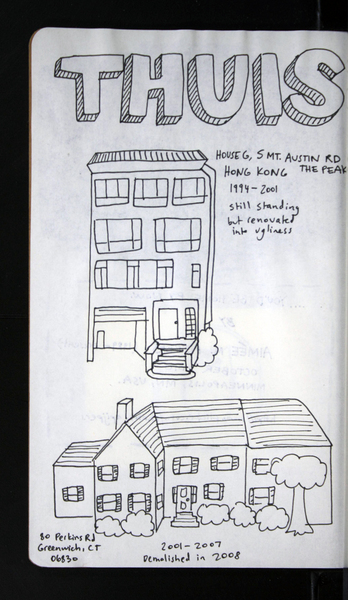 THUIS
HOUSE G, 5 MT. AUSTIN RD
HONG KONG THE PEAK
1994-2001
still standing
but renovated
into ugliness
80 Perkins Rd
Greenwich, CT
06830
2001-2007
Demolished in 2008